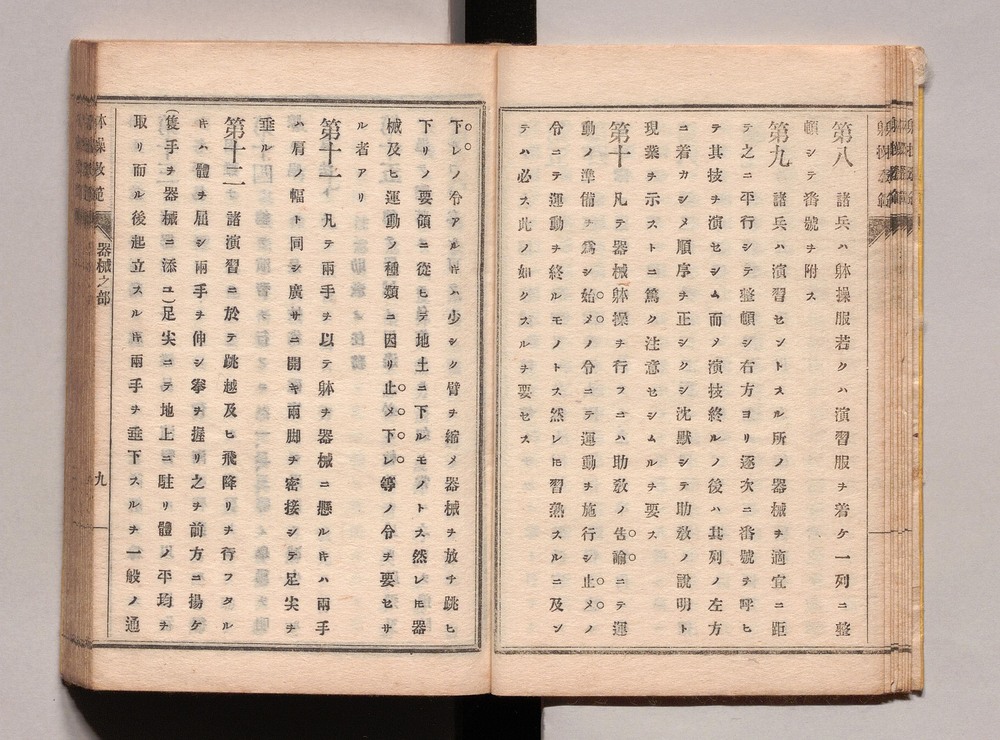 第八　諸兵ハ躰操服若クハ演習服ヲ着ケ一列ニ整
頓シテ番號ヲ附ス
第九　諸兵ハ演習セントスル所ノ器械ヲ適宜ニ距
テ之ニ平行シテ整頓シ右方ヨリ逐次ニ番號ヲ呼ヒ
テ其技ヲ演セシム而メ演技終ルノ後ハ其列ノ左方
ニ着カシメ順序ヲ正シクシ沈默シテ助敎ノ說明ト
現業ヲ示ストニ篤ク注意セシムルヲ要ス
第十　凡テ器械躰操ヲ行フニハ助敎ノ告諭ニテ運
動ノ準備ヲ爲シ始メノ令ニテ運動ヲ施行シ止メノ
令ニテ運動ヲ終ルモノトス然レ𪜈習熟スルニ及ン
テハ必ス此ノ如クスルヲ要セス
下レノ令アルキハ少シク臂ヲ縮メ器械ヲ放チ跳ヒ
下リノ要領ニ從ヒテ地上ニ下ルモノトス然レ𪜈器
械及ヒ運動ノ種類ニ因リ止メ下レ等ノ令ヲ要セサ
ル者アリ
第十一　凡テ兩手ヲ以テ躰ヲ器械ニ懸ルキハ兩手
ハ肩ノ幅ト同シ廣サニ開キ兩脚ヲ密接シテ足尖ヲ
垂ル
第十二　諸演習ニ於テ跳越及ヒ飛降リヲ行フタル
キハ體ヲ屈シ兩手ヲ伸シ拳ヲ握リ之ヲ前方ニ揚ケ
(隻手ヲ器械ニ添ユ)足尖ニテ地上ニ駐リ體ノ平均ヲ
取リ而ル後起立スルキ兩手ヲ垂下スルヲ一般ノ通
躰操敎範
器械之部
九